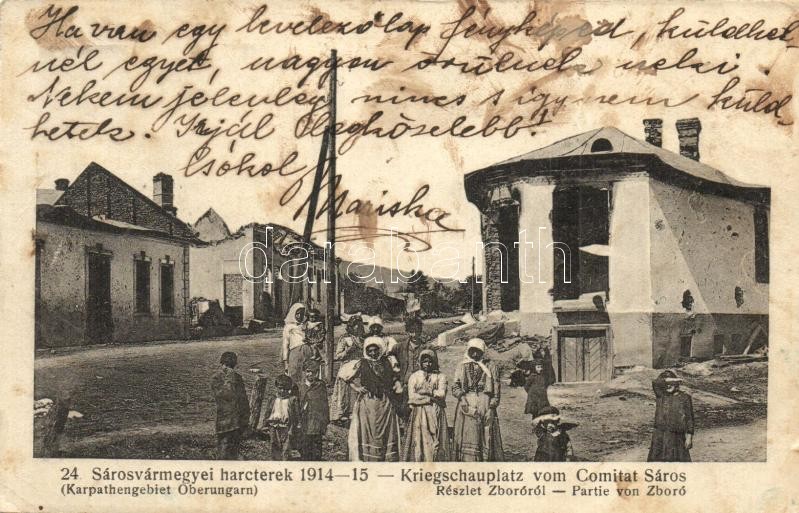 Ha van egy levelezőlap fényképed, küldhet-
nél egyet, nagyon örülnék neki.
Nekem jelenleg nincs s így nem küld-
hetek. Írjál legközelebb!
Csókol
Mariska
darabanth
24 Sárosvármegyei harcterek 1914—15 — Kriegschauplatz vom Comitat Sáros
(Karpathengebiet Oberungarn) Részlet Zboróról — Partie von Zboró